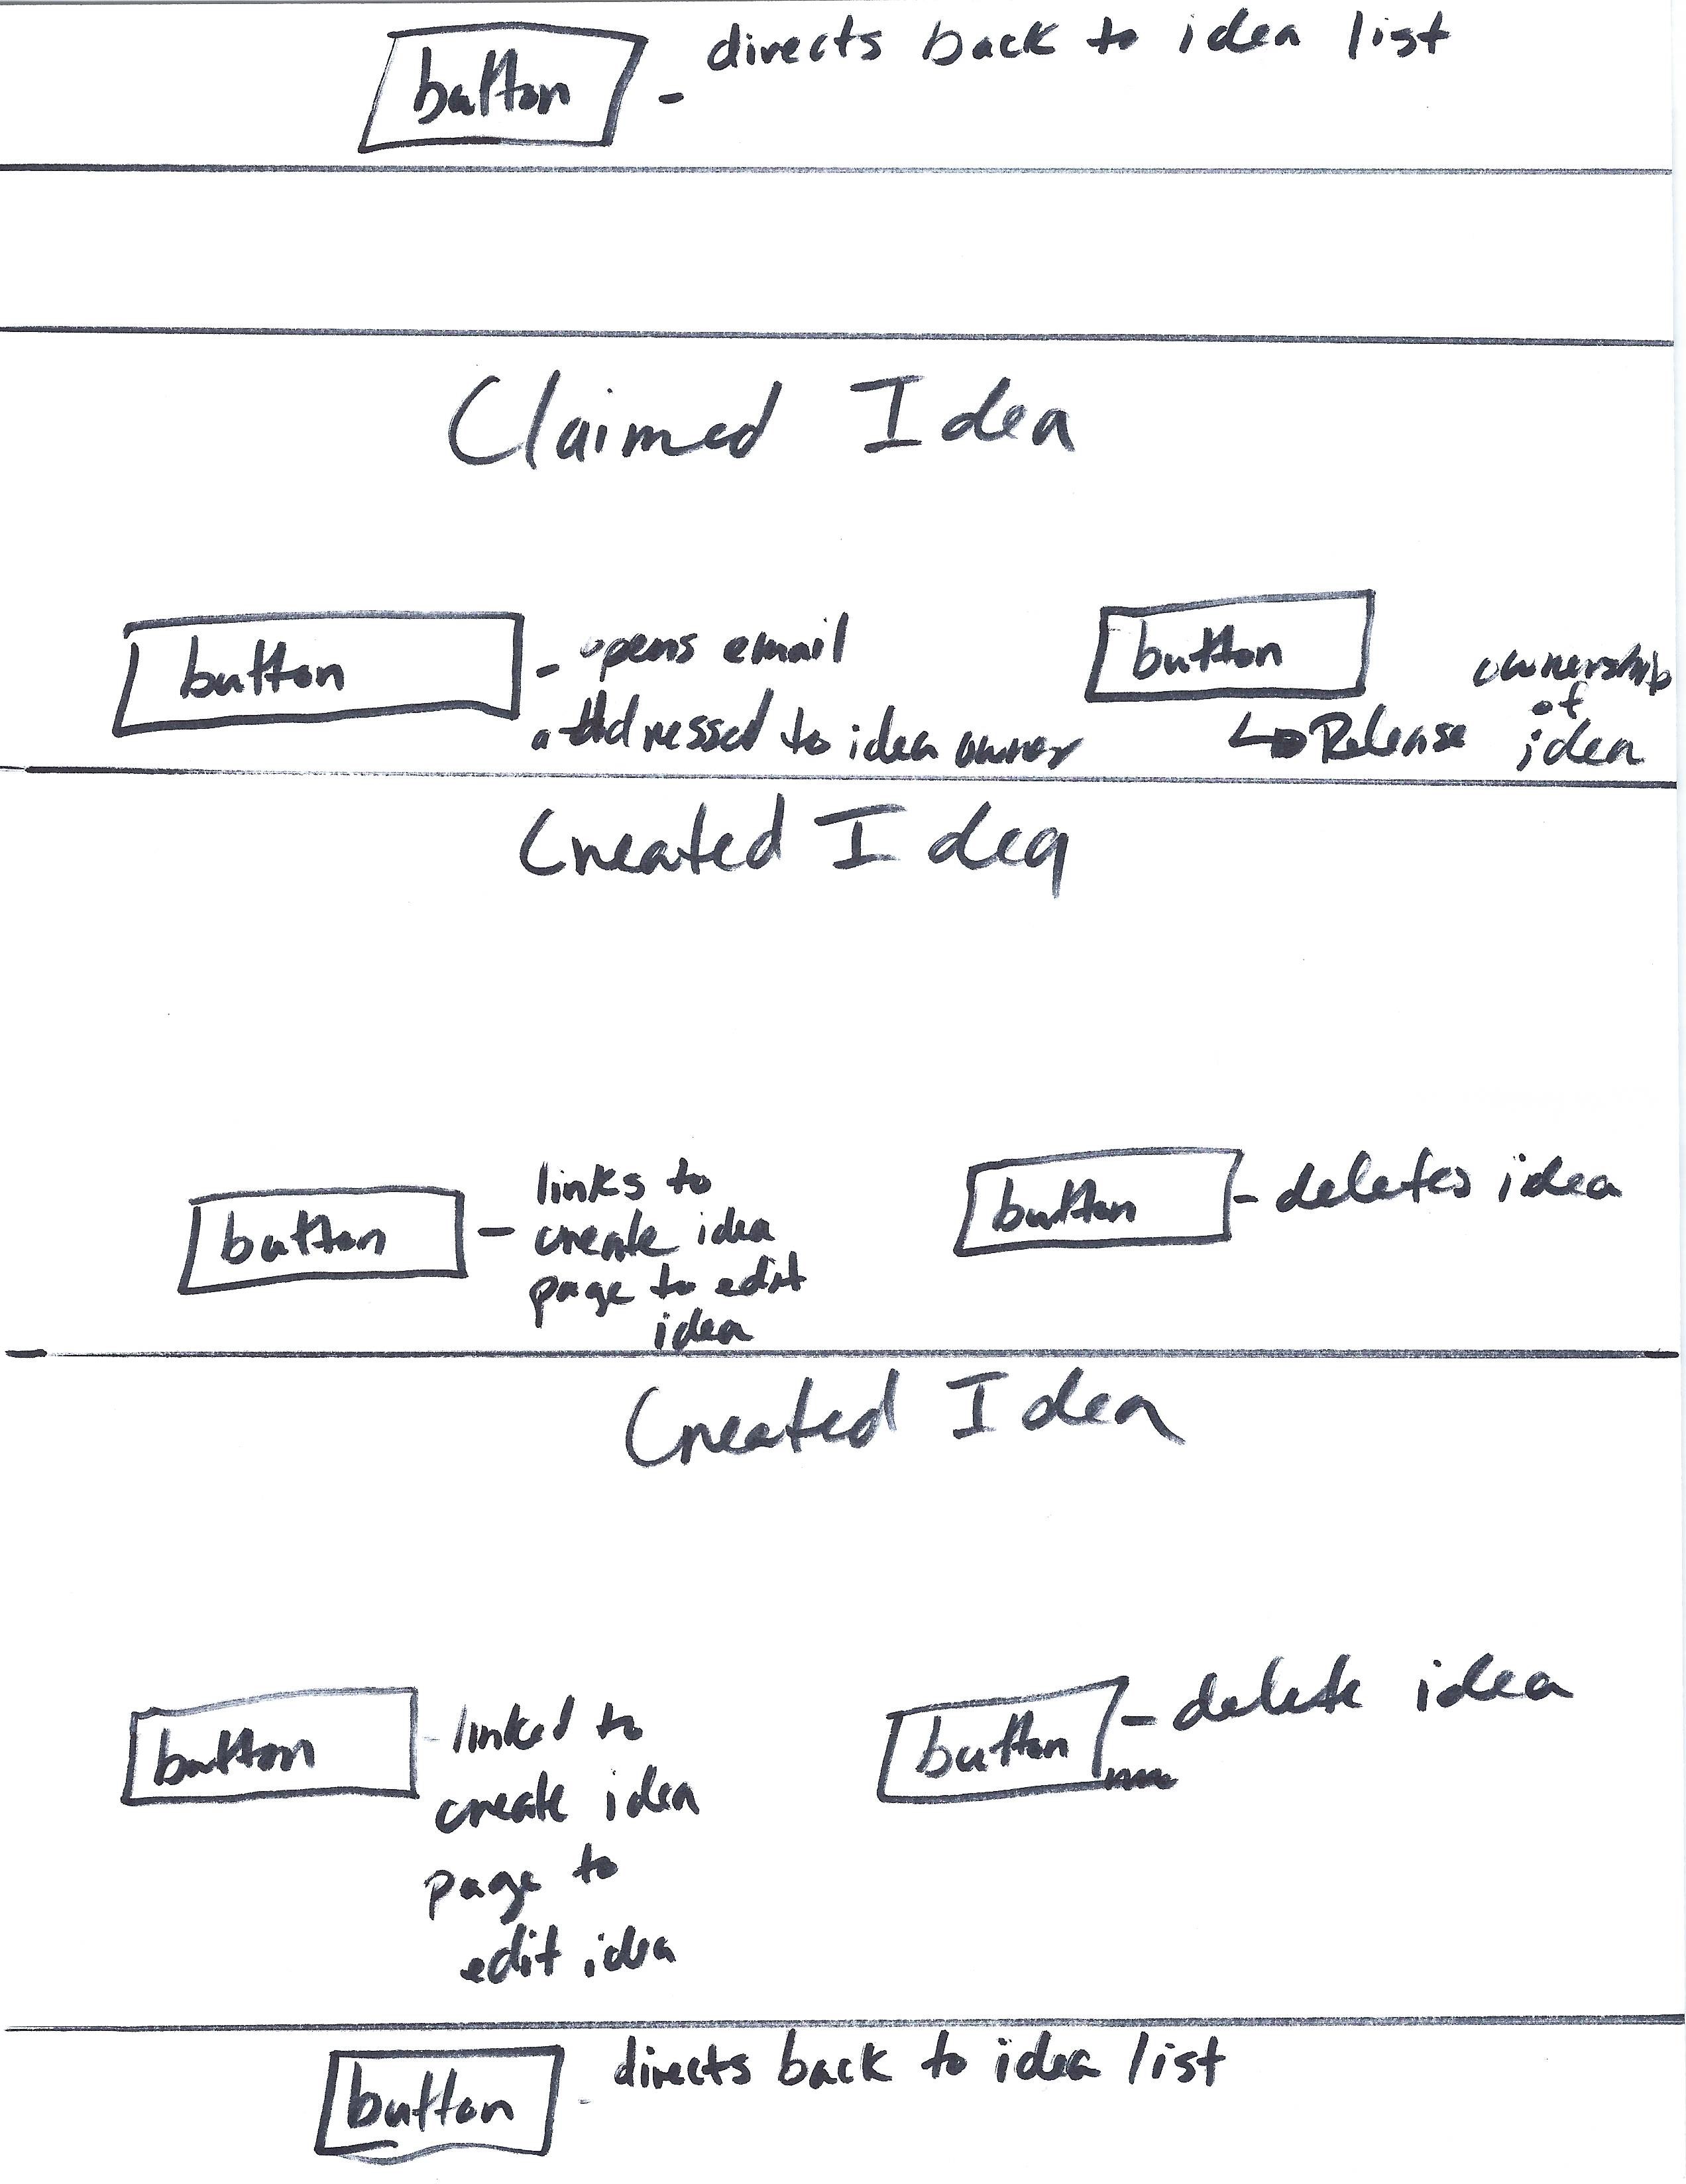 button - directs back to idea list
Claimed Idea
button - opens email
addressed to idea owner
button
Release ownership of idea
Created Idea
button - links to
create idea
page to edit
idea
button - deletes idea
Created Idea
button - linked to
create idea
page to
edit idea
button - delete idea
button - directs back to idea list